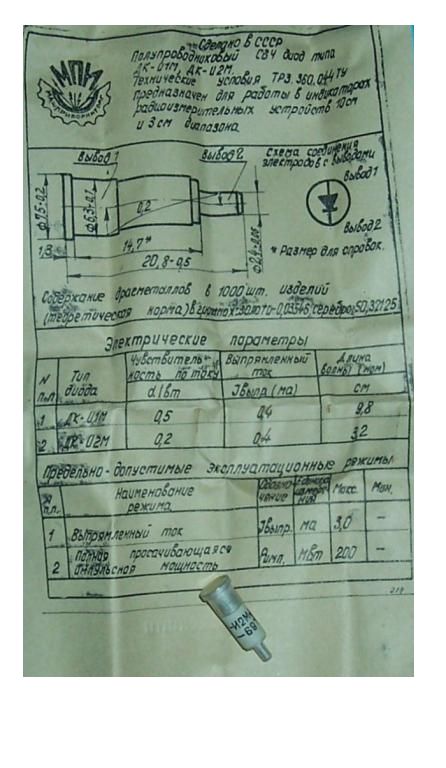 Сделано в СССР
Полупроводниковый СВЧ диод типа
ДК-И1М, ДК-И2М.
Технические условия ТР3.360.044ТУ
Предназначен для работы в индикаторах
радиоизмерительных устройств 10см
и 3см диапазона
МПИ
вывод 1
вывод 2
схема соединения
электродов с выводами
вывод1
вывод2
ф7,5-0,2
ф6,3-0,1
0,2
14,7*
20,8-0,5
* Размер для справок.
Содержание драгметаллов в 1000 шт. изделий
(теоретическая норма) в граммах: золото-0,03545; серебро-50,32125
Электрические параметры
N п.п
Тип диода
Чувствительность по току
Выпрямленный ток
Длина волны (ном)
а 1/вт
Iвыпр. (ма)
см
1 ДК-И1М 0,5 0,4 9,8
2 ДК-И2М 0,2 0,4 3,2
Предельно-допустимые эксплуатационные режимы
N п.п.
Наименование режима
Обозначение
Единица измерения
Макс.
Мин.
1 Выпрямленный ток Iвыпр. ма 3,0 –
2 Полная просачивающаяся импульсная мощность Римп. мВт 200 –
-И2М
69